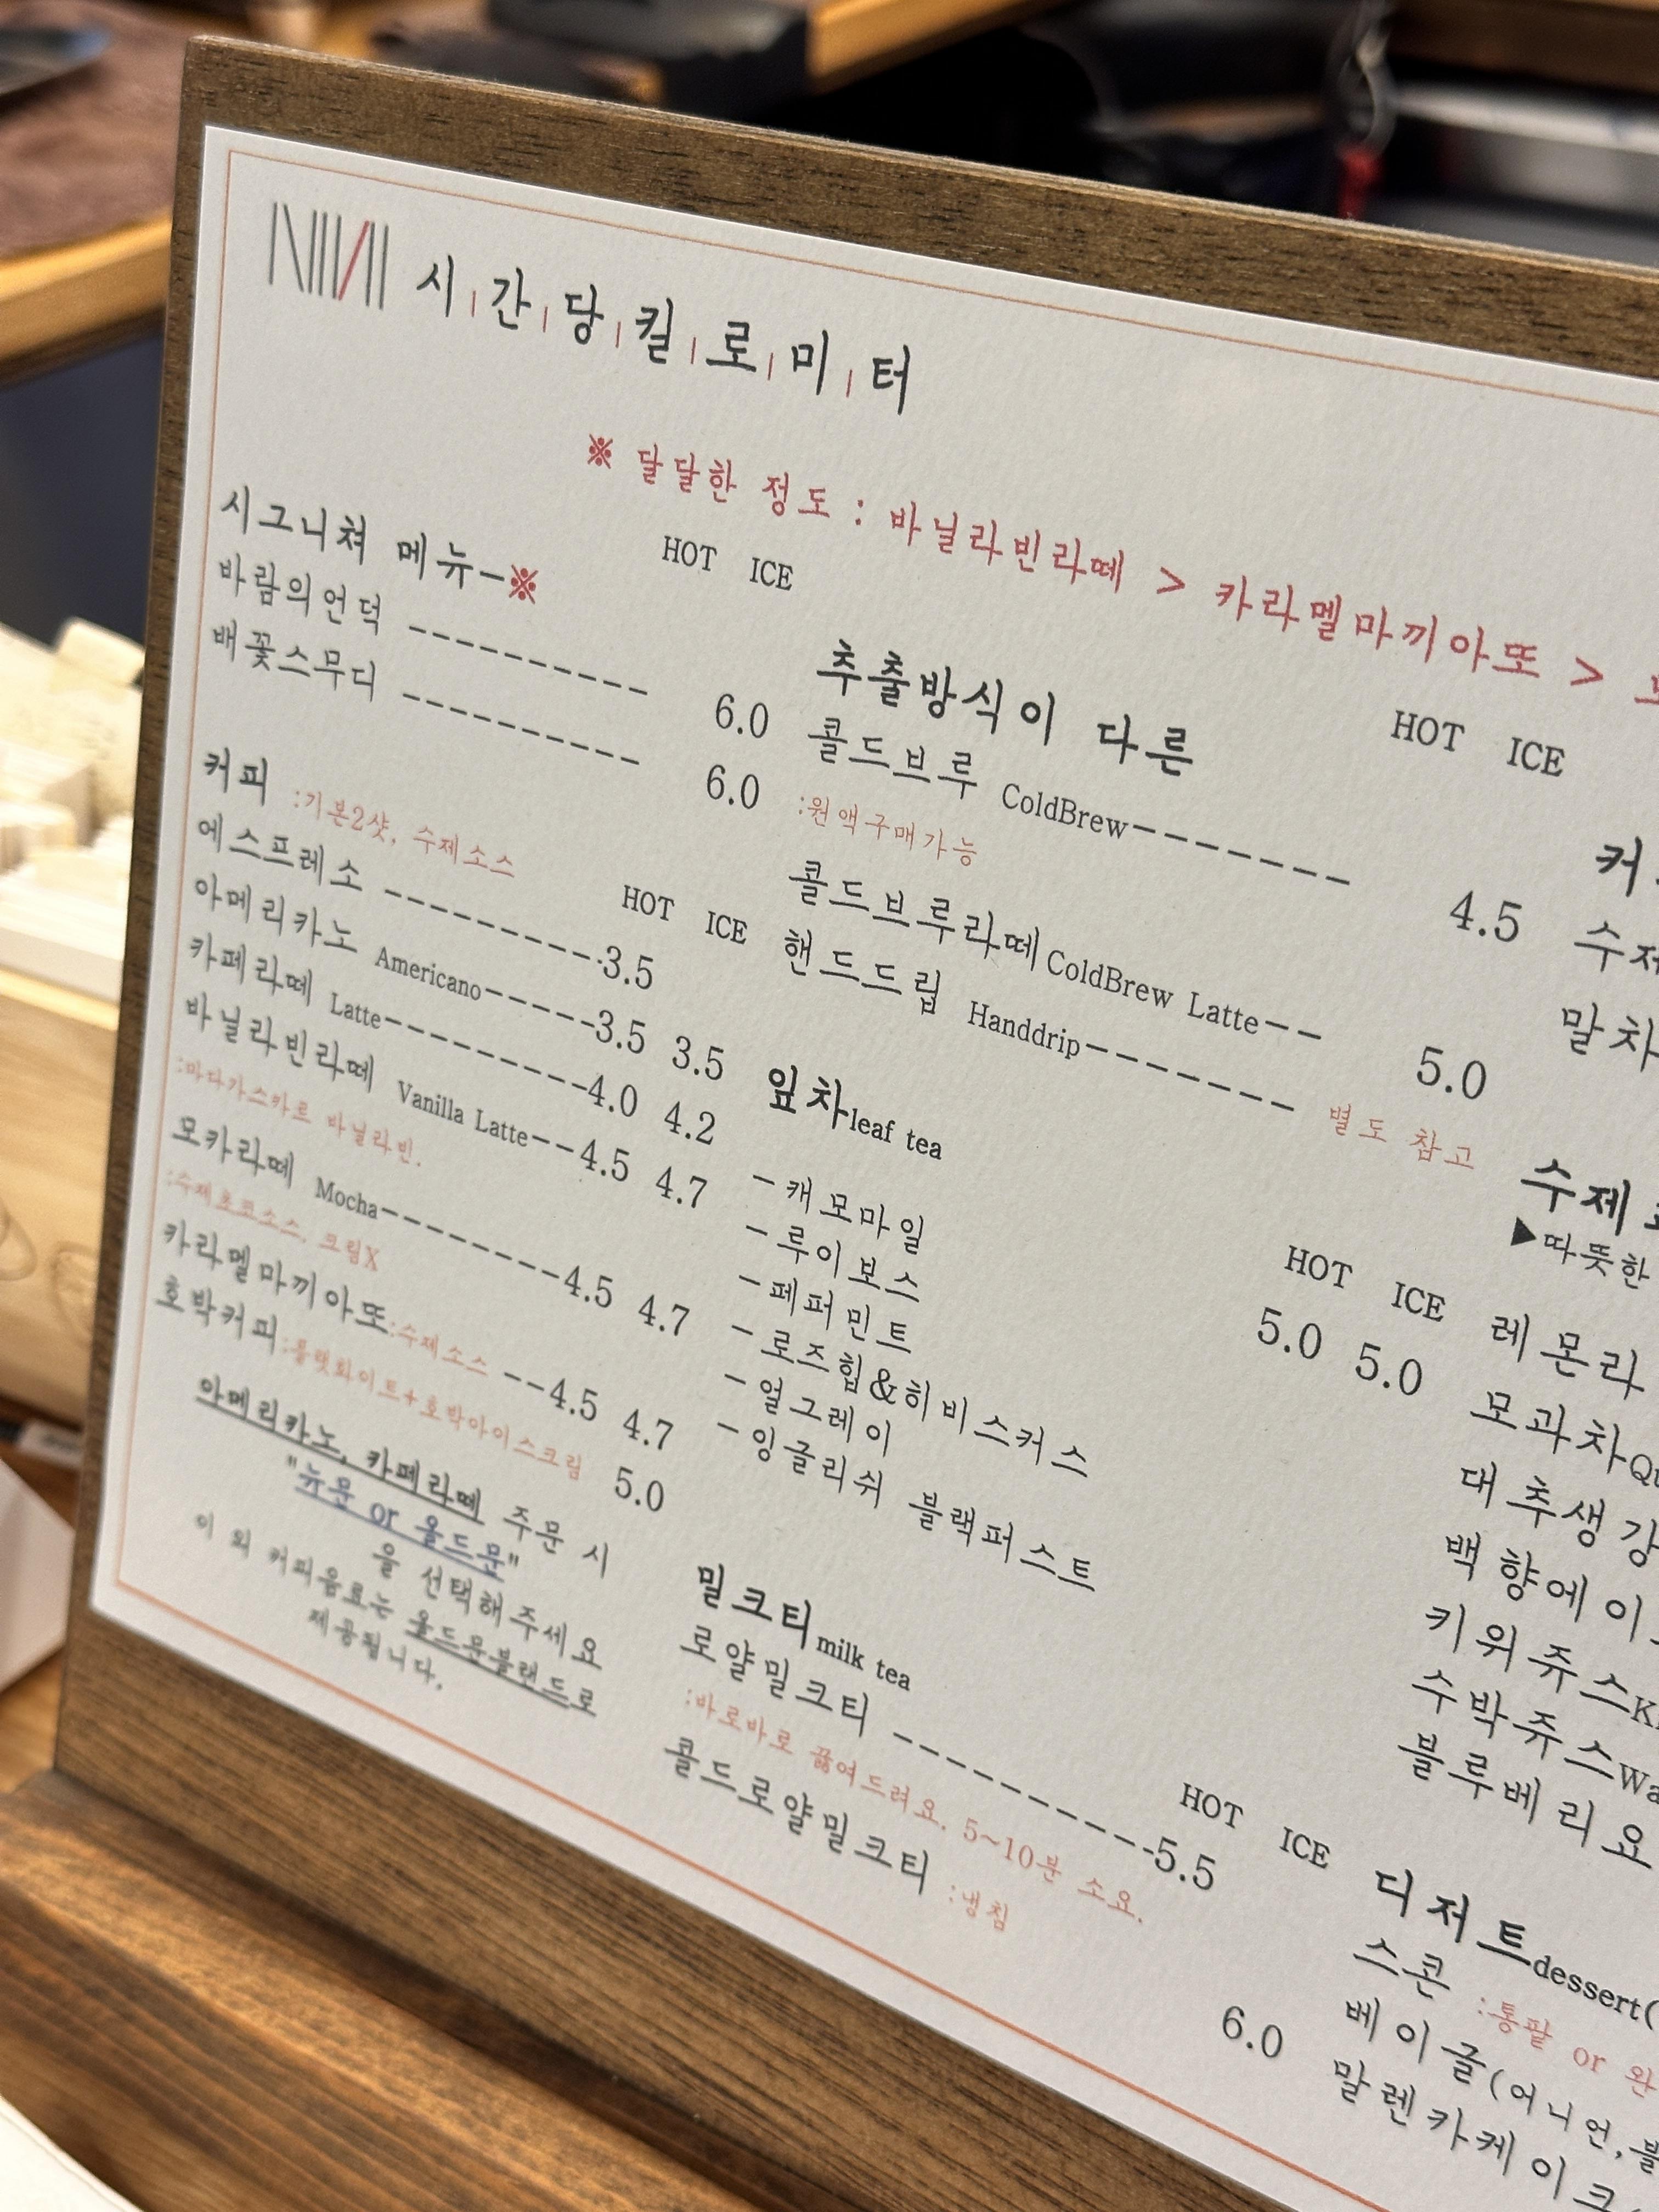 시간당킬로미터
※ 달달한 정도 : 바닐라빈라떼 > 카라멜마끼아또 >
시그니쳐 메뉴-※ HOT ICE
바람의언덕 --------- 6.0
배꽃스무디 --------- 6.0
커피 :기본2샷, 수제소스 HOT ICE
에스프레소 ---------3.5
아메리카노 Americano-----3.5 3.5
카페라떼 Latte---------4.0 4.2
바닐라빈라떼 Vanilla Latte--4.5 4.7
:마다가스카르 바닐라빈.
모카라떼 Mocha--------4.5 4.7
:수제초코소스, 크림X
카라멜마끼아또:수제소스 --4.5 4.7
호박커피:플랫화이트+호박아이스크림 5.0
아메리카노, 카페라떼 주문 시
"뉴문 or 올드문"
을 선택해주세요
이 외 커피음료는 올드문블랜드로
제공됩니다.
추출방식이 다른 HOT ICE
콜드브루 ColdBrew------- 4.5
:원액구매가능
콜드브루라떼ColdBrew Latte-- 5.0
핸드드립 Handdrip------- 별도 참고
잎차leaf tea HOT ICE
-캐모마일 5.0 5.0
-루이보스
-페퍼민트
-로즈힙&히비스커스
-얼그레이
-잉글리쉬 블랙퍼스트
밀크티milk tea HOT ICE
로얄밀크티 ---------5.5
:바로바로 끓여드려요. 5~10분 소요.
콜드로얄밀크티 :냉침 6.0
커
수제
말차
수제
▶따뜻한
레몬라
모과차
대추생강
백향에이
키위쥬스
수박쥬스
블루베리요
디저트dessert(
스콘 :통팥 or 완
베이글(어니언,블
말렌카케이크